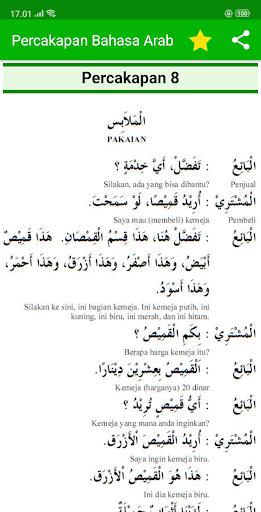 17.01
Percakapan Bahasa Arab
Percakapan 8
الْمَلَابِس
PAKAIAN
الْبَائِعُ : تَفَضَّلْ، أَيَّ خِدْمَةٍ ؟
Silakan, ada yang bisa dibantu? Penjual
الْمُشْتَرِيْ : أُرِيْدُ قَمِيْصًا، لَوْ سَمَحْتَ.
Saya mau (membeli) kemeja Pembeli
الْبَائِعُ : تَفَضَّلْ هُنَا، هَذَا قِسْمُ الْقِمْصَانِ. هَذَا قَمِيْصٌ
أَبْيَضُ، وَهَذَا أَصْفَرُ، وَهَذَا أَزْرَقُ، وَهَذَا أَحْمَرُ،
وَهَذَا أَسْوَدُ.
Silakan ke sini, ini bagian kemeja. Ini kemeja putih, ini
kuning, ini biru, ini merah, dan ini hitam.
الْمُشْتَرِيْ : بِكَمِ الْقَمِيْصُ ؟
Berapa harga kemeja itu?
الْبَائِعُ : الْقَمِيْصُ بِعِشْرِيْنَ دِيْنَارًا.
Kemeja (harganya) 20 dinar
الْبَائِعُ : أَيُّ قَمِيْصٍ تُرِيْدُ ؟
Kemeja yang mana anda inginkan?
الْمُشْتَرِيْ : أُرِيْدُ الْقَمِيْصَ الْأَزْرَقَ.
Saya ingin kemeja biru.
الْبَائِعُ : هَذَا هُوَ الْقَمِيْصُ الْأَزْرَقُ.
Ini dia kemeja biru.